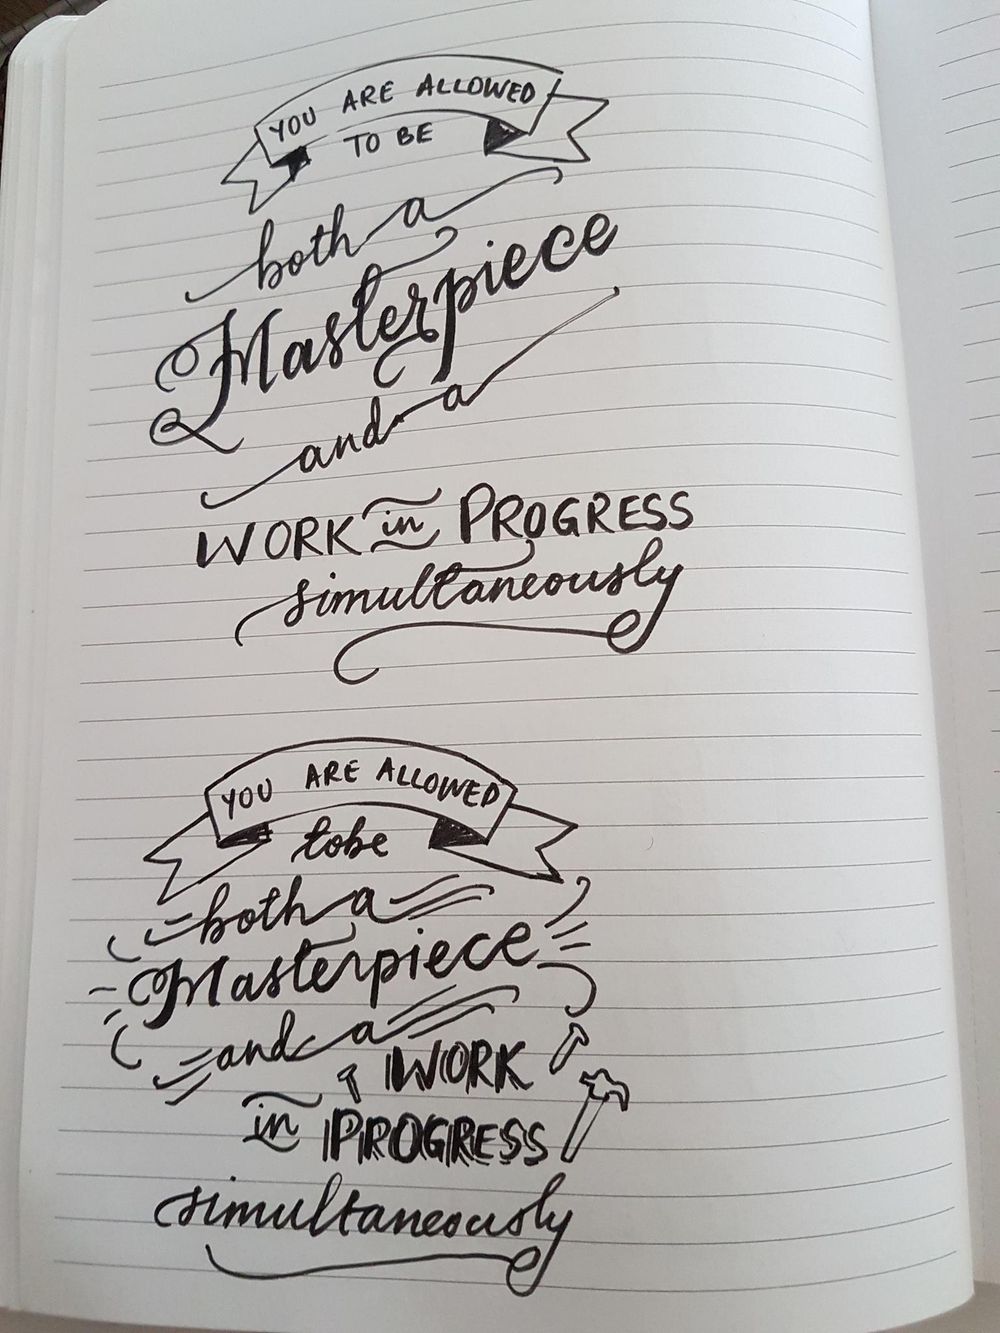 YOU ARE ALLOWED
TO BE
both a
Masterpiece
and a
WORK in PROGRESS
simultaneously
YOU ARE ALLOWED
to be
both a
Masterpiece
and a
WORK
in PROGRESS
simultaneously